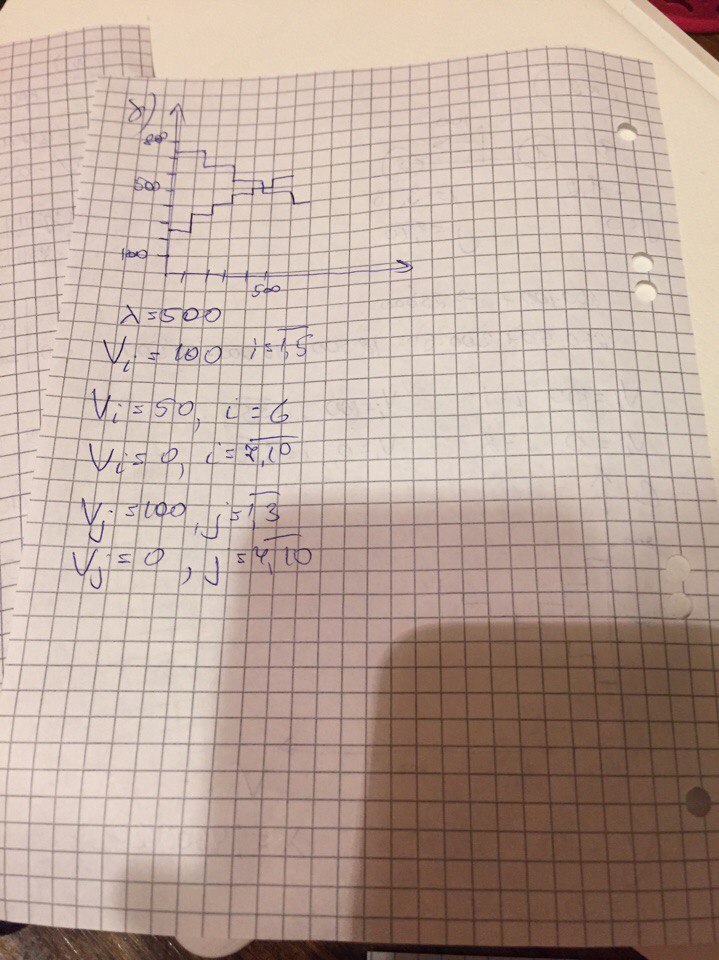 800
500
100
500
λ=500
Vᵢ = 100 i=1,5
Vᵢ=50, i=6
Vᵢ=0, i=7,10
Vⱼ=100, j=1,3
Vⱼ=0, j=4,10